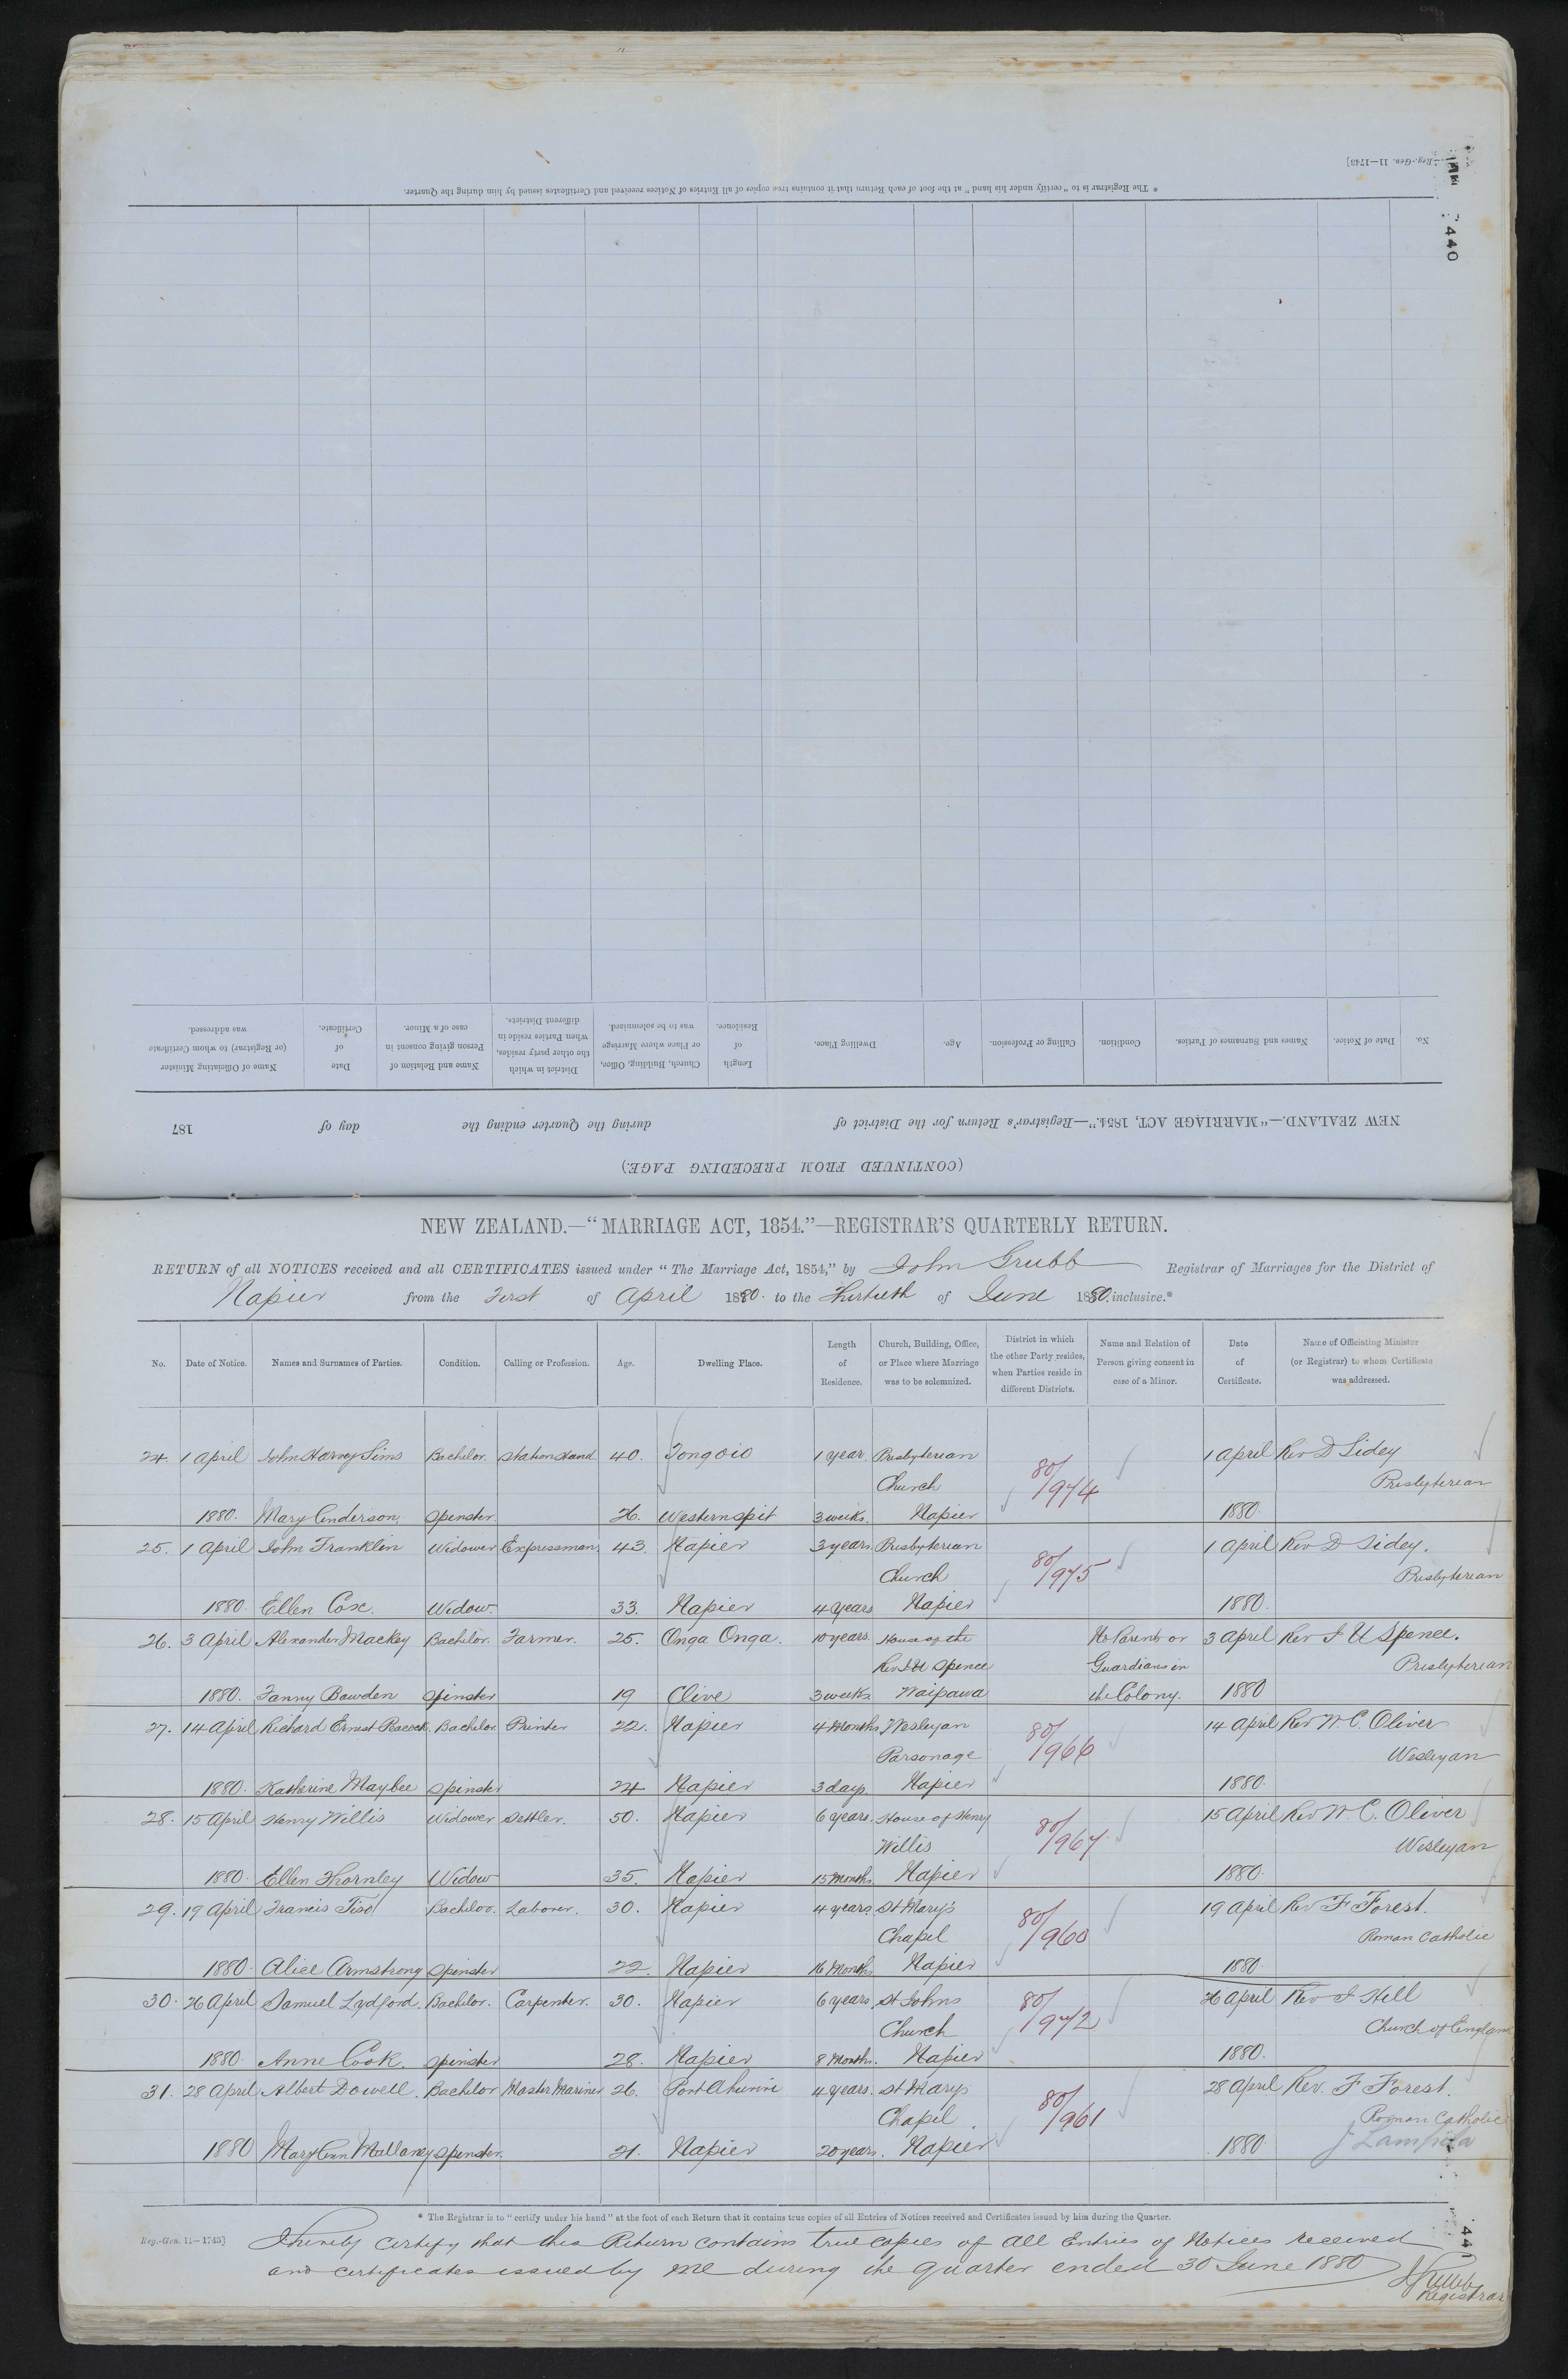 Reg.-Gen. 11—1743]
440
* The Registrar is to "certify under his hand" at the foot of each Return that it contains true copies of all Entries of Notices received and Certificates issued by him during the Quarter.
(CONTINUED FROM PRECEDING PAGE.)
NEW ZEALAND.—"MARRIAGE ACT, 1854."—Registrar's Return for the District of during the Quarter ending the day of 187
No. Date of Notice. Names and Surnames of Parties. Condition. Calling or Profession. Age. Dwelling Place. Length of Residence. Church, Building, Office, or Place where Marriage was to be solemnized. District in which the other party resides, when Parties reside in different Districts. Name and Relation of Person giving consent in case of a Minor. Date of Certificate. Name of Officiating Minister (or Registrar) to whom Certificate was addressed.
NEW ZEALAND.—"MARRIAGE ACT, 1854."—REGISTRAR'S QUARTERLY RETURN.
RETURN of all NOTICES received and all CERTIFICATES issued under "The Marriage Act, 1854," by John Grubb Registrar of Marriages for the District of
Napier from the First of April 1880. to the Thirtieth of June 1880. inclusive.*
No. Date of Notice. Names and Surnames of Parties. Condition. Calling or Profession. Age. Dwelling Place. Length of Residence. Church, Building, Office, or Place where Marriage was to be solemnized. District in which the other Party resides, when Parties reside in different Districts. Name and Relation of Person giving consent in case of a Minor. Date of Certificate. Name of Officiating Minister (or Registrar) to whom Certificate was addressed.
24. 1 April John Harvey Sims Bachelor. Station Hand. 40. Tongoio 1 year. Presbyterian 1 April Rev D Sidey
Church 80/974 Presbyterian
1880. Mary Anderson. Spinster. 26. Western Spit 3 weeks. Napier 1880.
25. 1 April John Franklin Widower Expressman. 43. Napier 3 years. Presbyterian 1 April Rev D Sidey.
Church 80/975 Presbyterian
1880. Ellen Cox. Widow 33. Napier 4 Years Napier 1880.
26. 3 April Alexander Mackey Bachelor. Farmer. 25. Onga Onga. 10 years. House of the No Parents or 3 April Rev J U Spence.
Rev J U Spence Guardians in Presbyterian
1880. Fanny Bawden Spinster 19 Clive 3 weeks Waipawa the Colony. 1880
27. 14 April Richard Ernest Peacock. Bachelor. Printer 22. Napier 4 Months. Wesleyan 14 April Rev W. C. Oliver
Parsonage 80/966 Wesleyan
1880. Katherine Maybee Spinster 24 Napier 3 days Napier 1880.
28. 15 April Henry Willis Widower Settler. 50. Napier 6 years. House of Henry 15 April Rev W. C. Oliver
Willis 80/967 Wesleyan
1880. Ellen Thornley Widow 35. Napier 15 Months. Napier 1880.
29. 19 April Francis Tiso Bachelor. Laborer. 30. Napier 4 years. St Mary's 19 April Rev F Forest.
Chapel 80/960 Roman Catholic
1880. Alice Armstrong Spinster 22. Napier 16 Months Napier 1880.
30. 26 April Samuel Lydford. Bachelor. Carpenter. 30. Napier 6 years St Johns 26 April Rev J Hill
Church 80/972 Church of England
1880. Anne Cook. Spinster 28. Napier 8 Months. Napier 1880.
31. 28 April Albert Dowell. Bachelor Master Mariner 26. Port Ahuriri 4 years. St Marys 28 April Rev. F Forest.
Chapel. 80/961 Roman Catholic
1880 Mary Ann Mallaney Spinster. 21. Napier 20 years. Napier 1880
* The Registrar is to "certify under his hand" at the foot of each Return that it contains true copies of all Entries of Notices received and Certificates issued by him during the Quarter.
Reg.-Gen. 11—1743]
I hereby certify that this Return contains true copies of all Entries of Notices received
and certificates issued by me during the quarter ended 30 June 1880 J Grubb
Registrar
441